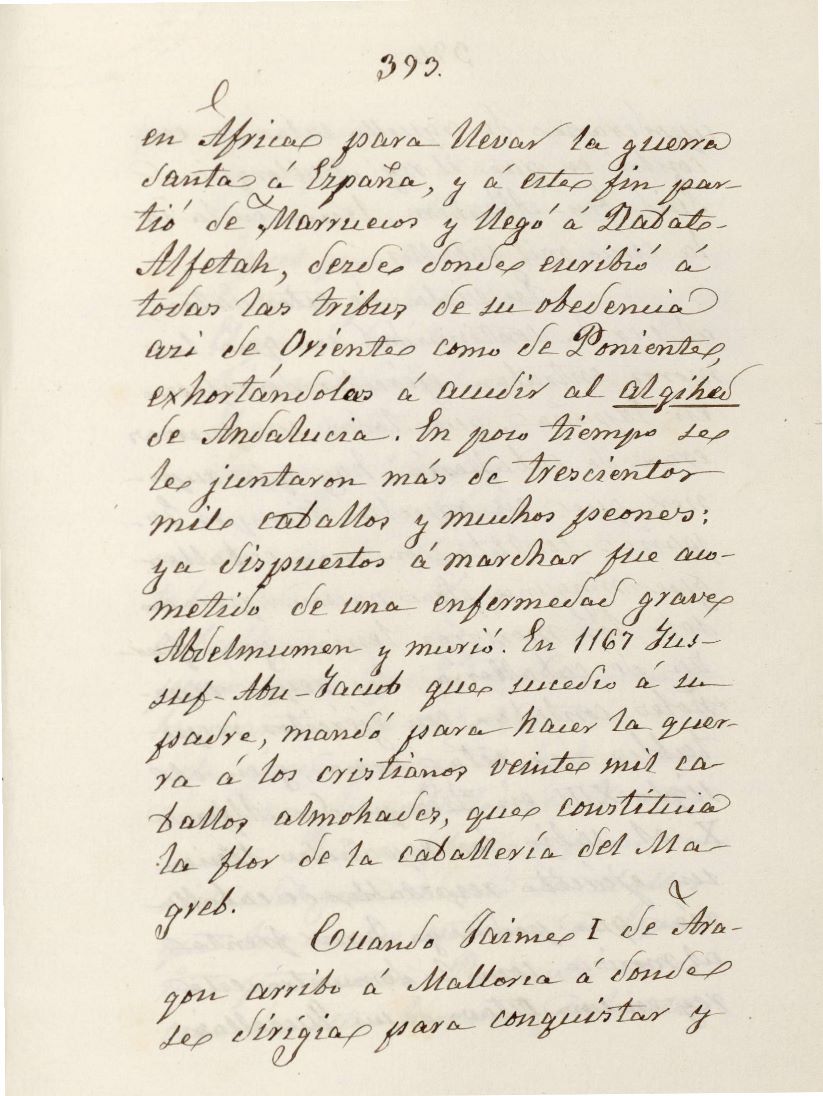 393.
en Africa para llevar la guerra
santa á España, y á este fin par-
tió de Marruecos y llegó á Rabat-
Alfetah, desde donde escribió á
todas las tribus de su obedencia
asi de Oriente como de Poniente,
exhortándolas á acudir al algihed
de Andalucia. En poco tiempo se
le juntaron más de trescientos
mil caballos y muchos peones:
ya dispuestos á marchar fue aco-
metido de una enfermedad grave
Abdelmumen y murió. En 1167 Jus-
suf-Abu-Jacub que sucedio á su
padre, mandó para hacer la guer-
ra á los cristianos veinte mil ca-
ballos almohades, que constituia
la flor de la caballería del Ma-
greb.
Cuando Jaime I de Ara-
gon arribo á Mallorca á donde
se dirigia para conquistar y